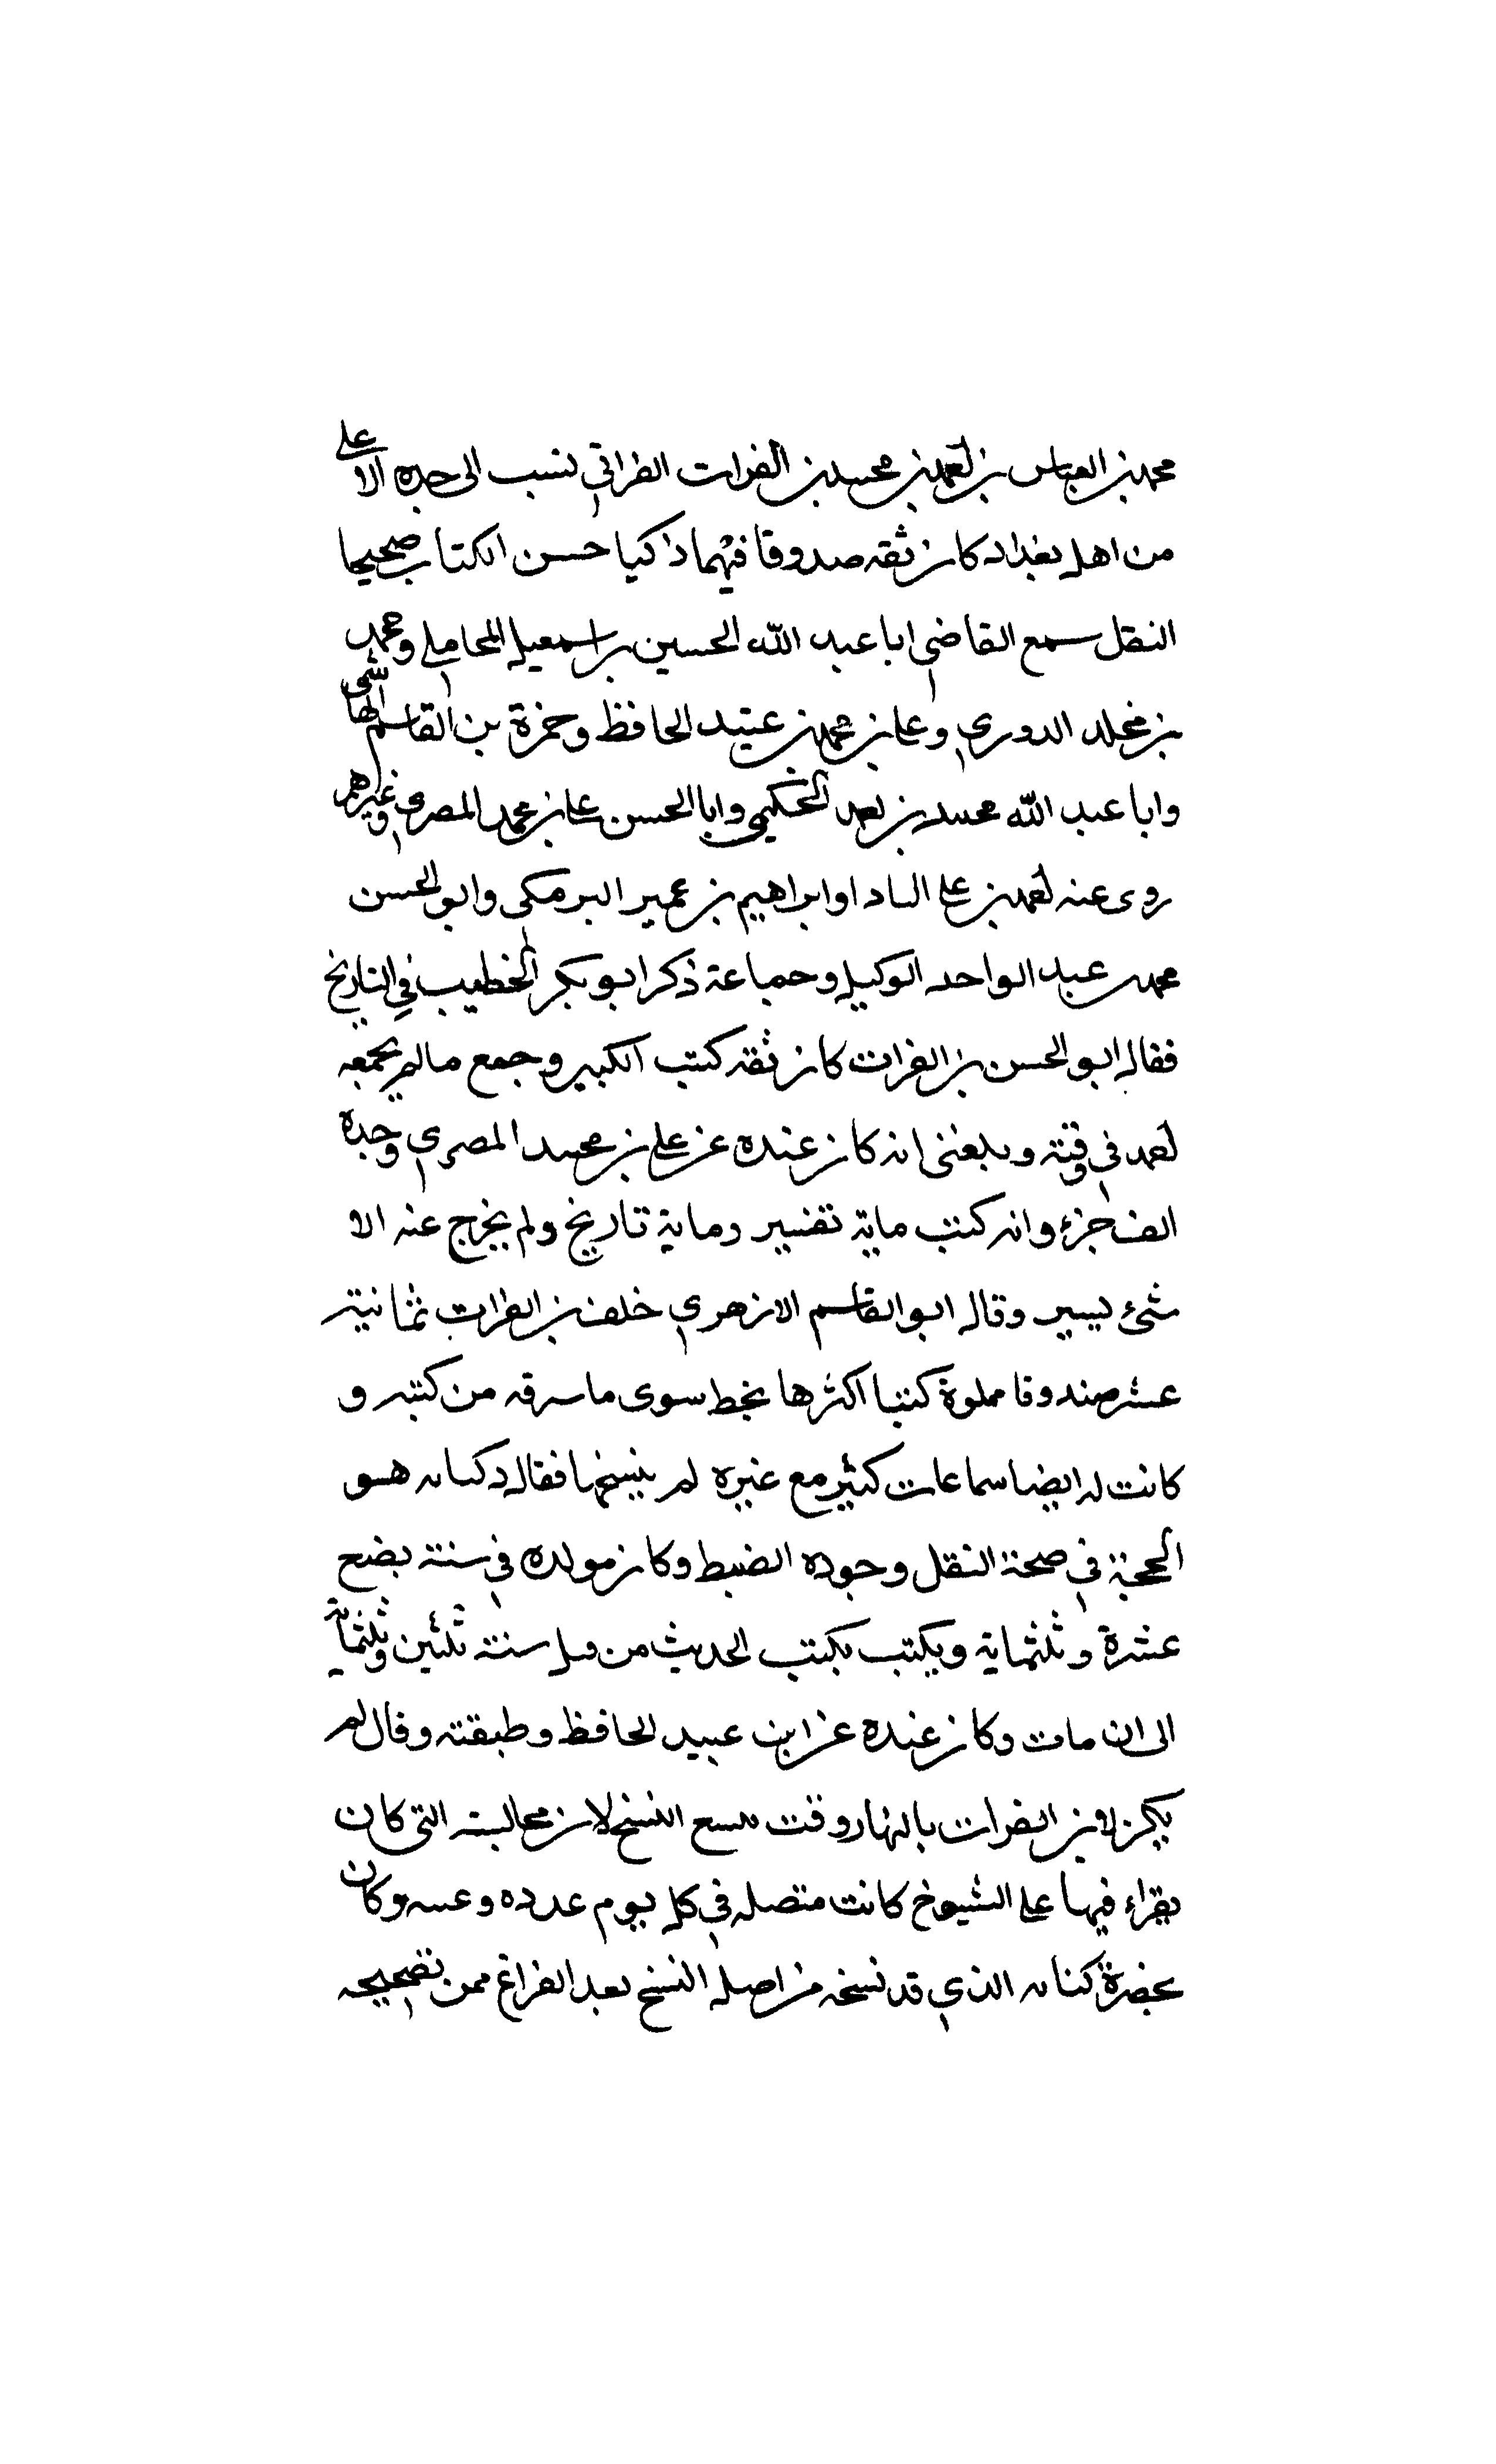 محمد بن العباس بن احمد بن محمد بن الفرات الفراتي نسب الى جده الاعلى
من اهل بغداد كان ثقه صدوقا فهما ذاكيا حسن الكتاب صحيحا
النقل سمع القاضي ابا عبد الله الحسين بن اسمعيل المحاملي ومحمد
بن مخلد الدوري وعلي بن محمد بن عبيد الحافظ وحمزة بن القاسم الهاشمي
وابا عبد الله محمد بن احمد الحكيمي وابا الحسن علي بن محمد المصري وغيرهم
روى عنه احمد بن علي البادا وابراهيم بن عمير البرمكي وابو الحسن
محمد بن عبد الواحد الوكيل وجماعة ذكر ابو بكر الخطيب في التاريخ
فقال ابو الحسن بن الفرات كان ثقه كتب الكبير وجمع ما لم يجمعه
احمد في وقته وبلغني انه كان عنده عن علي بن محمد المصري وحده
الف جزء وانه كتب ماية تفسير وماية تاريخ ولم يخرج عنه الا
شئ يسير وقال ابو القاسم الازهري خلف بن الفرات ثمانية
عشر صندوقا مملوة كتبا اكثرها بخط سوى ما سرقه من كتبه و
كانت له ايضا سماعات كثير مع غيره لم ينسخها فقال وكتابه هو
الحجة في صحة النقل وجوده الضبط وكان مولده في سنة بضع
عشرة وثلثماية ويكتب بكتب الحديث من قبل سنة ثلثين وثلثماية
الى ان مات وكان عنده عن ابن عبيد الحافظ وطبقته وقال لم
يكن لابن الفرات بالنهار وقت يسع النسخ لان مجالسته التي كان
يقراء فيها على الشيوخ كانت متصله في كل يوم غدوه وعشيه وكان
يحضرة كتابه الذي قد نسخه من اصل النسخ بعد الفراغ ممن تصحيحه